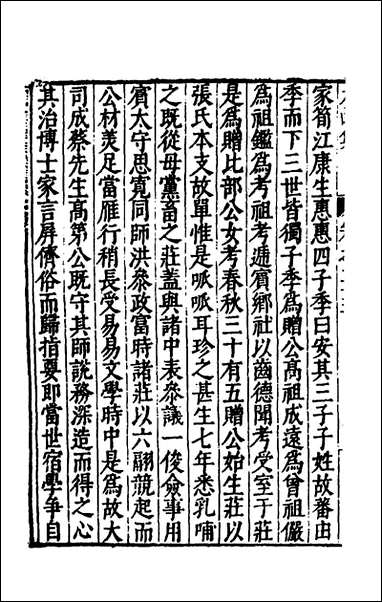 家筍江康生惠惠四子季曰安其三子子姓故蕃由
季而下三世皆獨子季爲贈公高祖成遠爲曾祖儼
爲祖鑑爲考祖考遞賓鄉社以齒德聞考受室于莊
是爲贈比部公女考春秋三十有五贈公始生莊以
張氏本支故單惟是呱呱耳珍之甚生七年悉乳哺
之既從母黨畜之莊蓋與諸中表參議一俊僉事用
賓太守思寬同師洪參政富時諸莊以六翮競起而
公材美足當雁行稍長受易易文學時中是爲故大
司成蔡先生高第公既守其師說務深造而得之心
其治博士家言屏儕俗而歸指要即當世宿學爭目